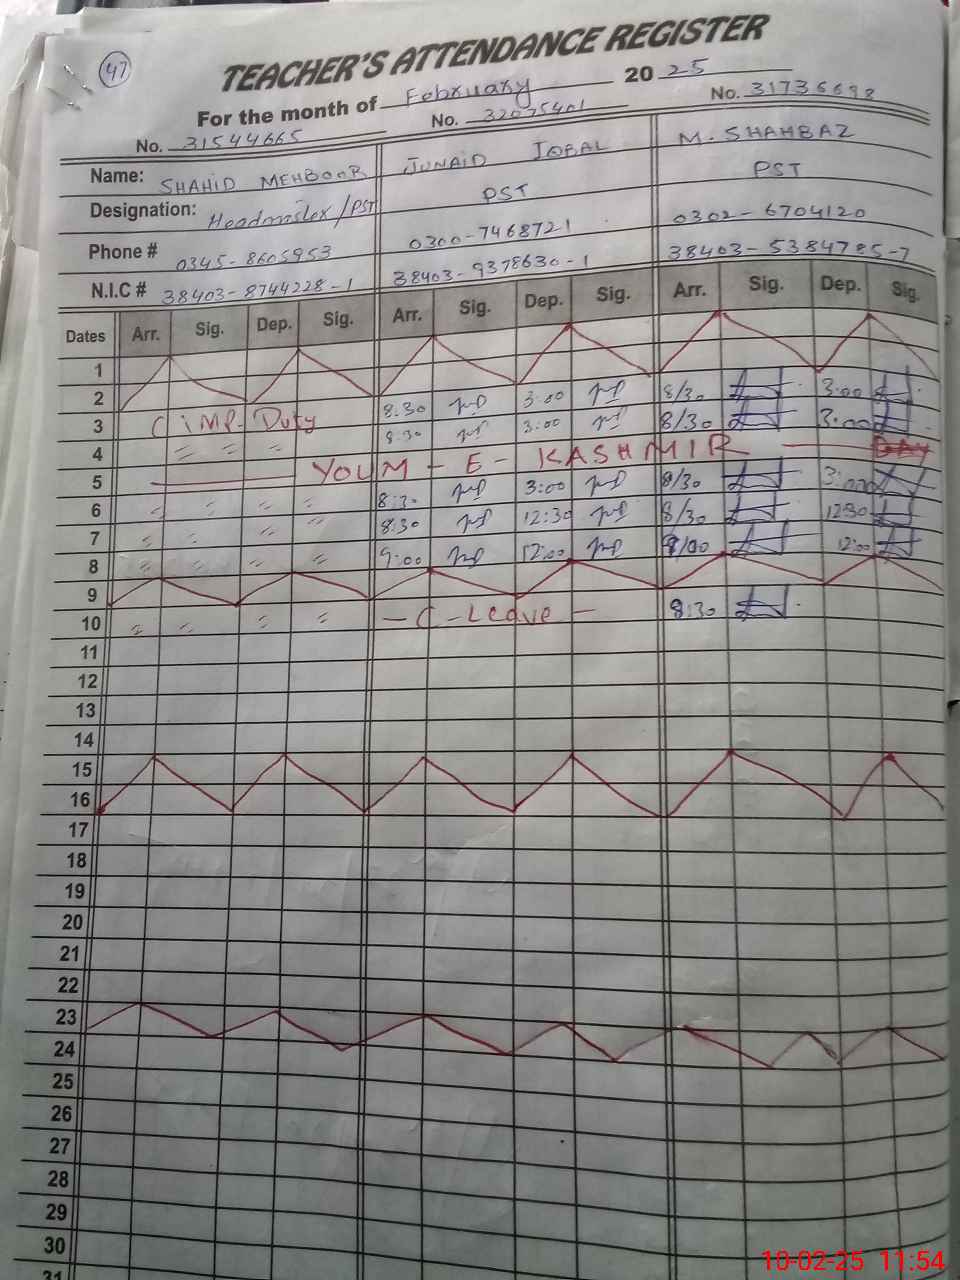 47
TEACHER'S ATTENDANCE REGISTER
For the month of February 2025
No. 31544665 No. 32075401 No. 31736698
Name: SHAHID MEHBOOB JUNAID IQBAL M. SHAHBAZ
Designation: Headmaster/PST PST PST
Phone # 0345-8605953 0300-7468721 0302-6704120
N.I.C # 38403-8744228-1 38403-9378630-1 38403-5384785-7
Dates Arr. Sig. Dep. Sig. Arr. Sig. Dep. Sig. Arr. Sig. Dep. Sig.
1
2
3 C iMP-Duty 8:30 3:00 8/30 3:00
4 〃 〃 〃 8:30 3:00 8/30 3:00
5 YOUM-E-KASHMIR DAY
6 〃 〃 〃 〃 8:30 3:00 8/30 3:00
7 〃 〃 〃 〃 8:30 12:30 8/30 12:30
8 〃 〃 〃 〃 9:00 12:00 9/00 12:00
9
10 〃 〃 〃 〃 - C-Leave - 8:30
11
12
13
14
15
16
17
18
19
20
21
22
23
24
25
26
27
28
29
30
31
10-02-25 11:54